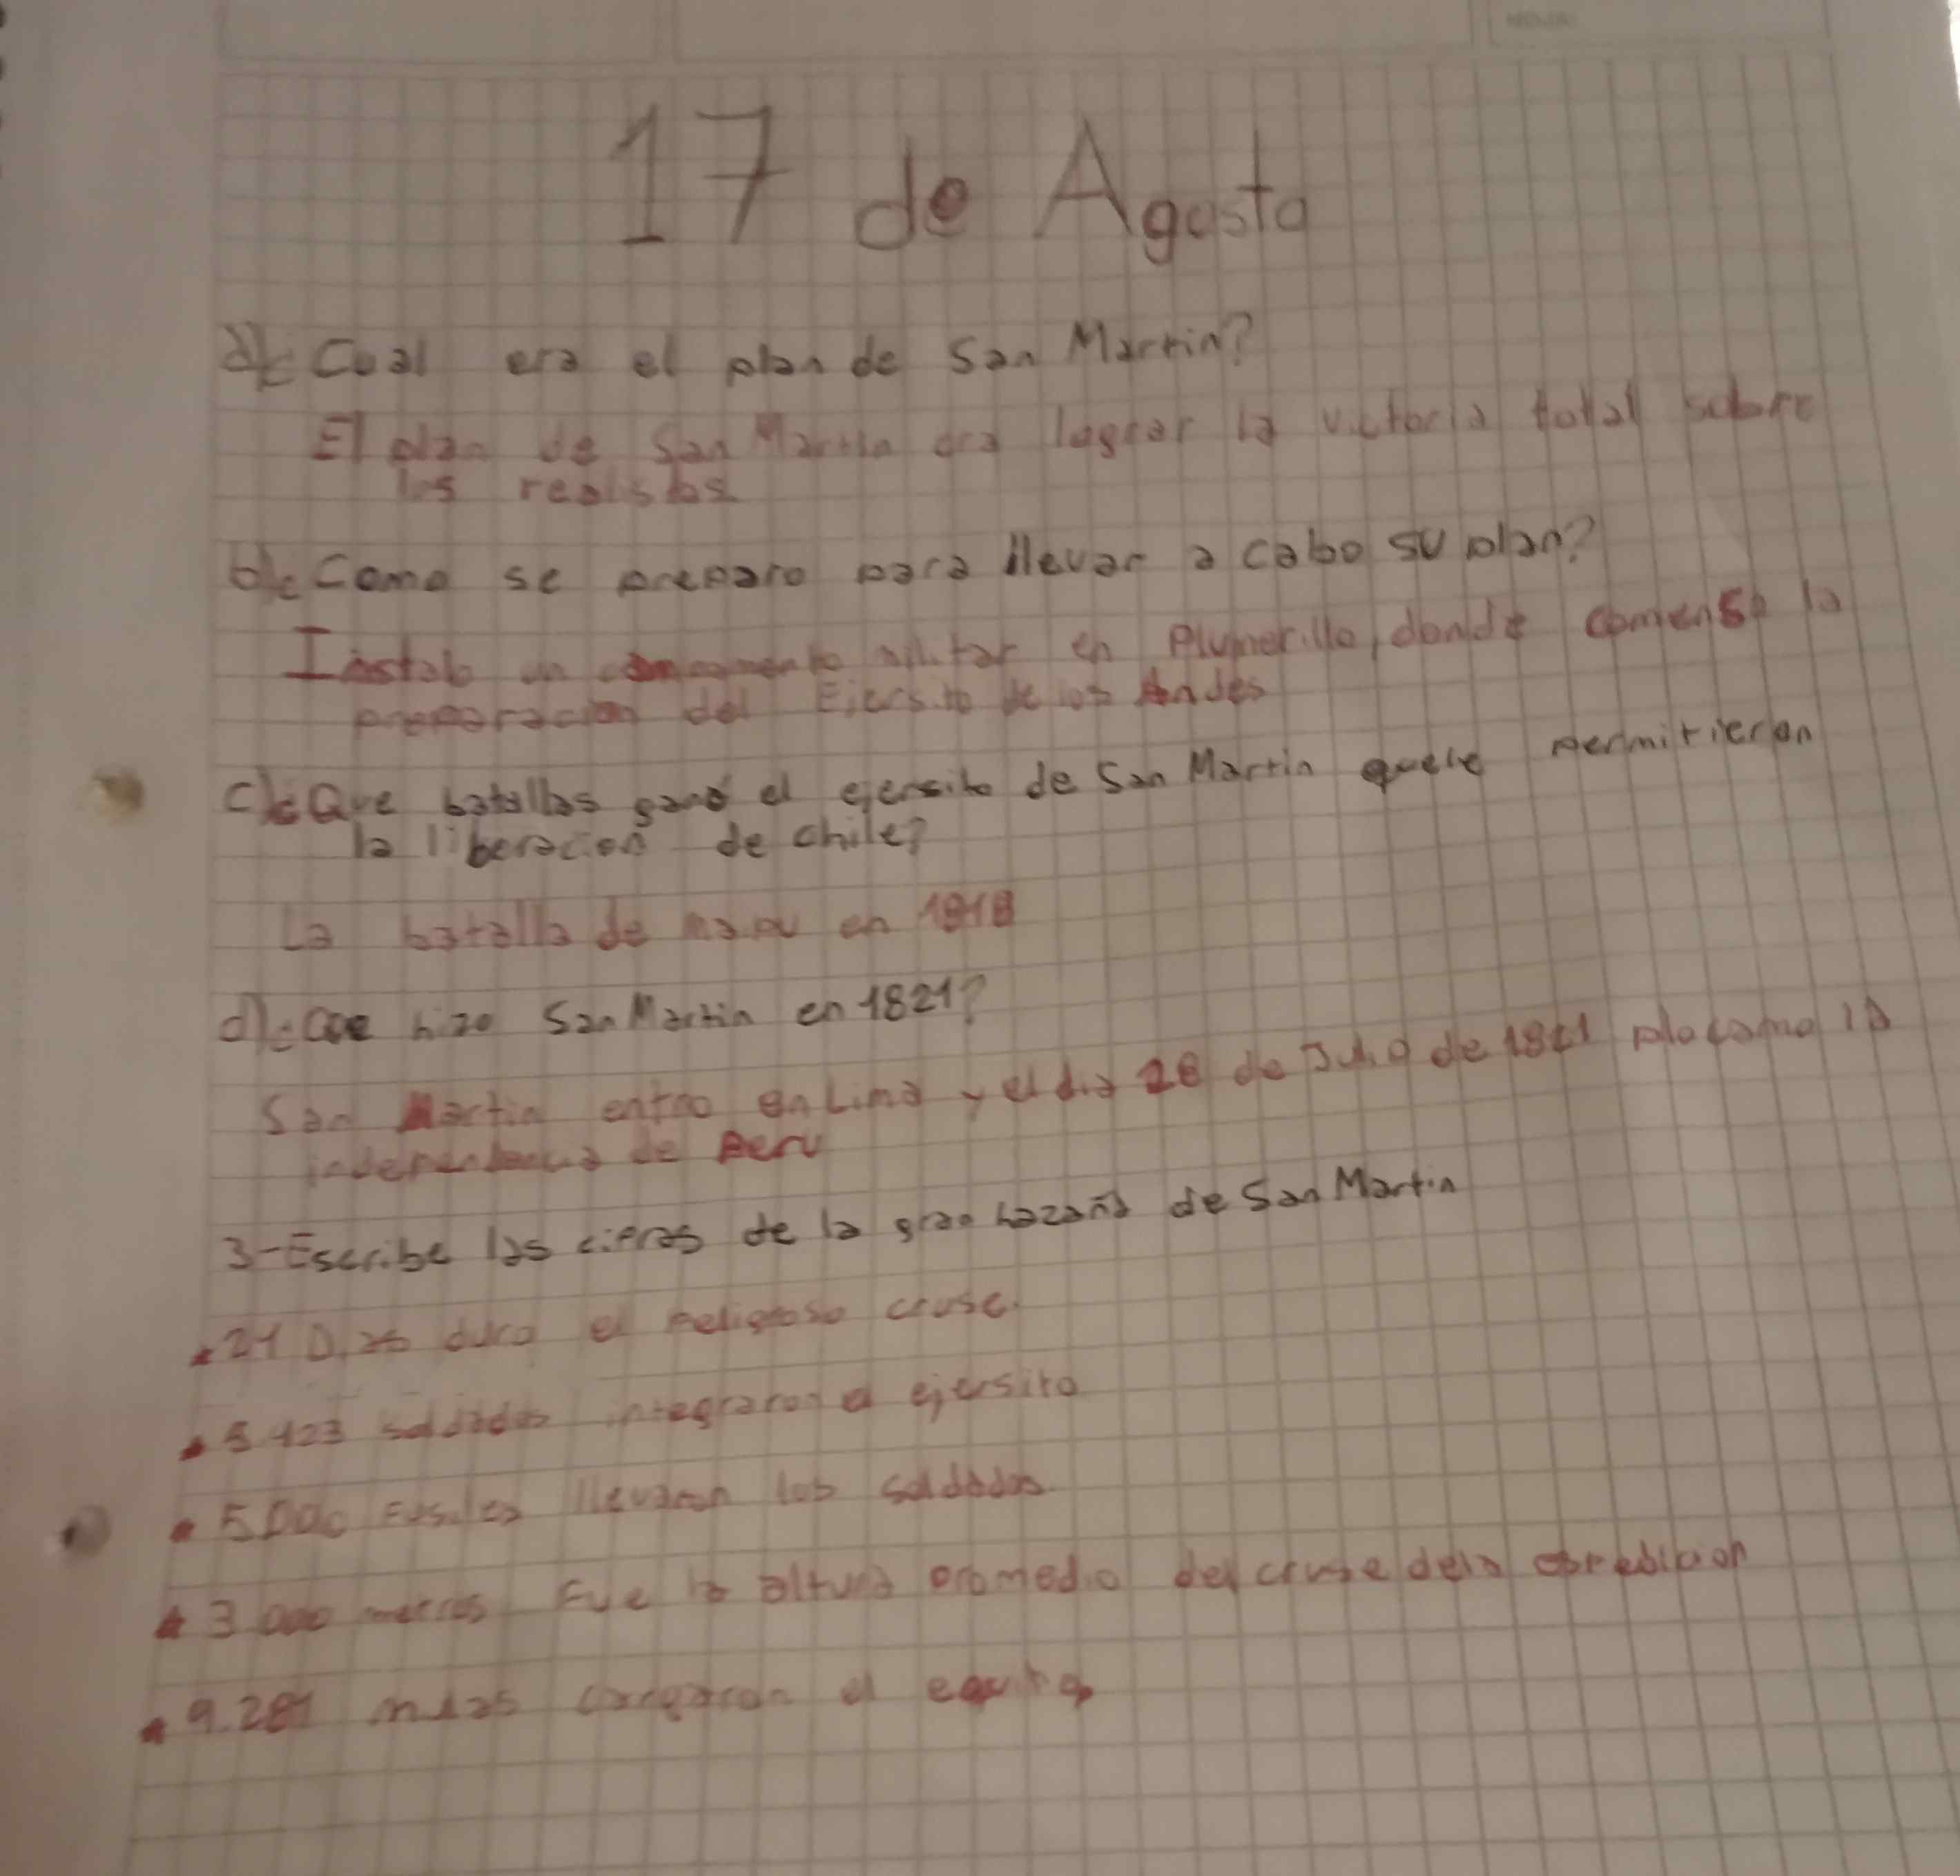 17 de Agosto
a)¿Cual era el plan de San Martin?
El plan de San Martin era lograr la victoria total sobre
los realistas
b)¿Como se preparo para llevar a cabo su plan?
Instalo un militar en Plumerillo, donde comenso la
preparacion del Ejersito de los Andes
c)¿Que batallas ganó el ejersito de San Martin que le permitieron
la liberacion de chile?
La batalla de maipu en 1818
d)¿Que hizo San Martin en 1821?
San Martin entro en Lima y el dia 28 de Julio de 1821 la
independencia de Peru
3-Escribe las cifras de la gran hazaña de San Martin
21 Dias duro el peligroso cruse.
5.423 soldados integraron el ejersito
5.000 Fusiles llevaron los soldados
3.000 metros Fue la altura promedio del cruse de la
9.281 mulas cargaron el equipo